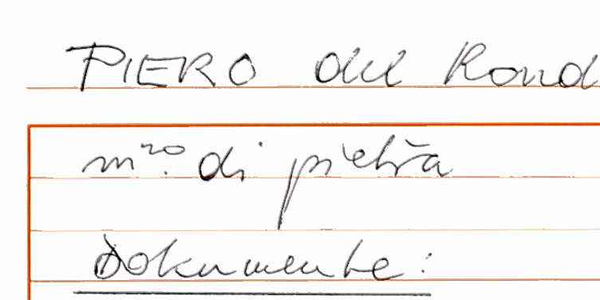 PIERO del Rond
m.ro di pietra
Dokumente: